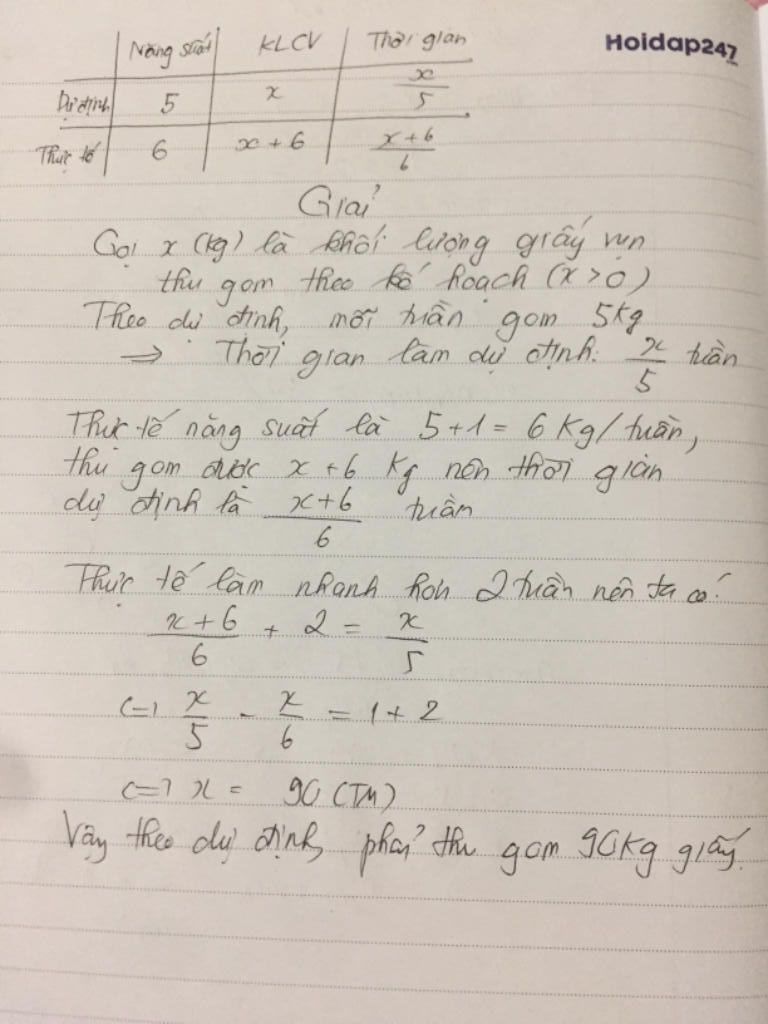 Hoidap247
.com
Năng suất KLCV Thời gian
Dự định 5 x x/5
Thực tế 6 x + 6 (x+6)/6
Giải
Gọi x (kg) là khối lượng giấy vụn
thu gom theo kế hoạch (x > 0)
Theo dự định, mỗi tuần gom 5kg
=> Thời gian làm dự định: x/5 tuần
Thực tế năng suất là 5+1 = 6 Kg/tuần,
thu gom được x + 6 Kg nên thời gian
dự định là (x+6)/6 tuần
Thực tế làm nhanh hơn 2 tuần nên ta có:
(x+6)/6 + 2 = x/5
<=> x/5 - x/6 = 1 + 2
<=> x = 90 (TM)
Vậy theo dự định, phải thu gom 90Kg giấy.